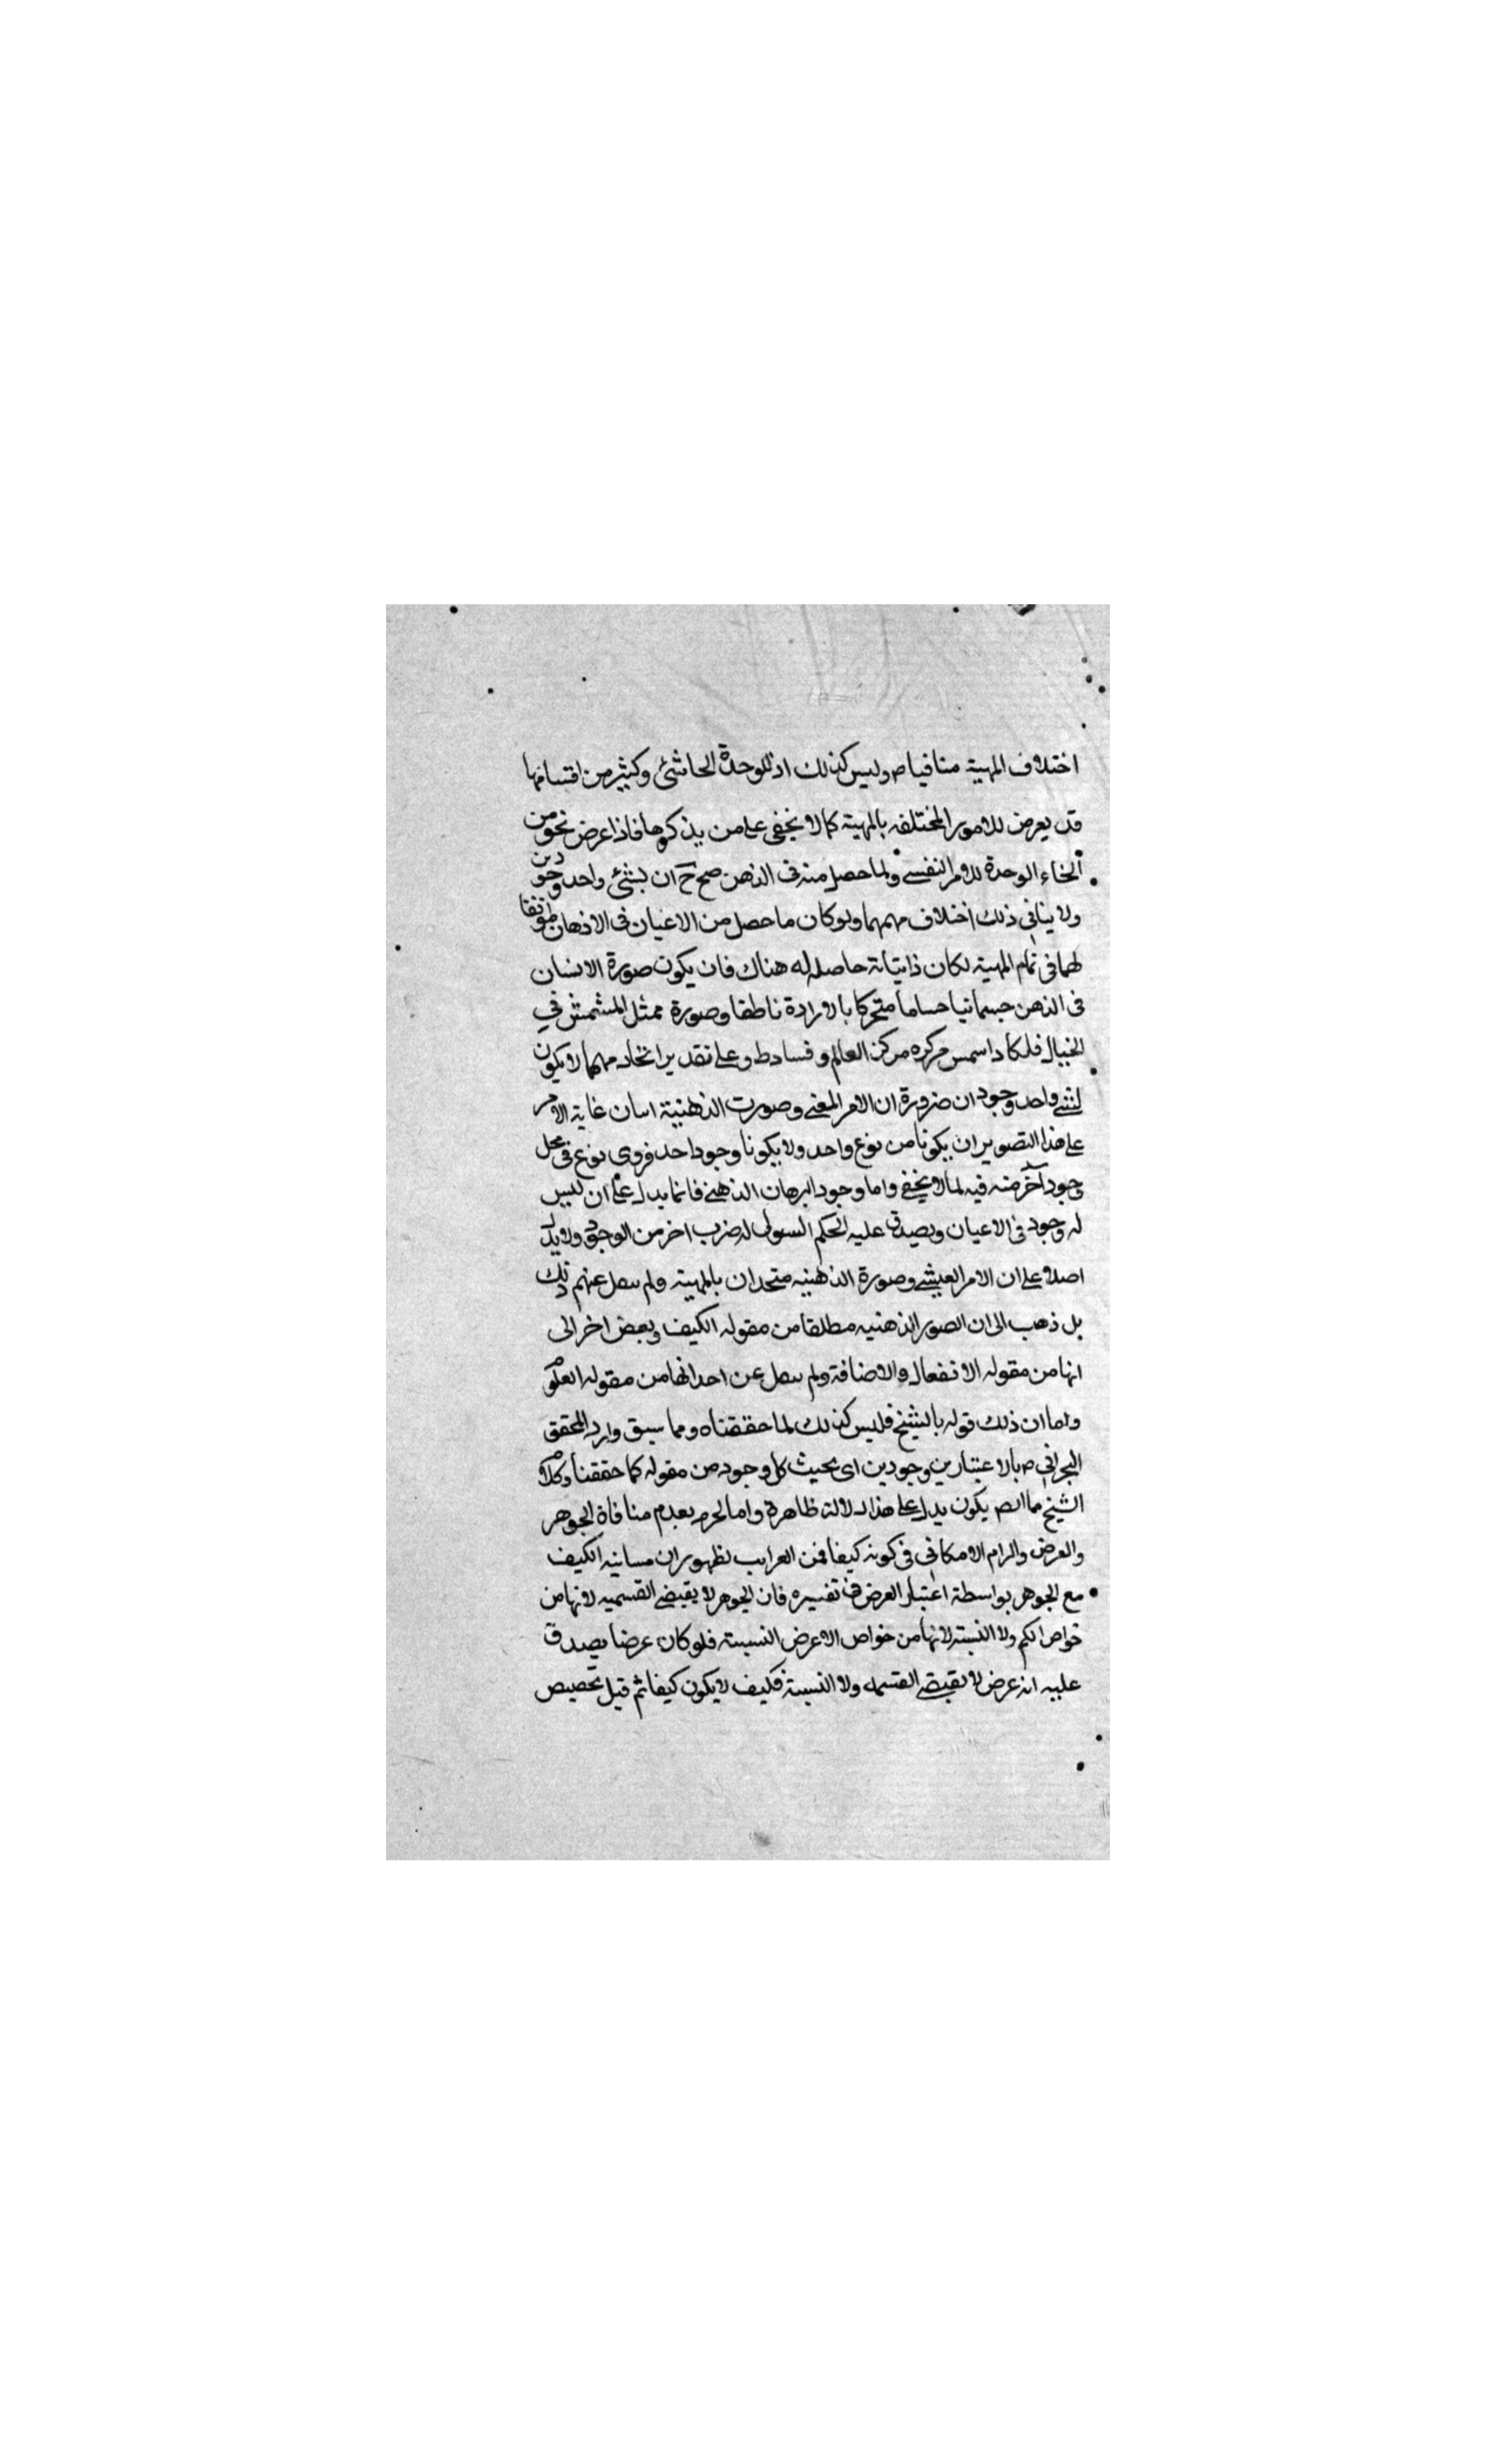 اختلاف المهية منافيا ص وليس كذلك اذ للوحدة الحاشئ وكثير من اقسامها
قد يعرض للامور المختلفه بالمهية كما لا يخفى على من يذكرها فاذا عرض نحو من
انحاء الوحدة للامر النفسي ولما حصل منه في الذهن صح ح ان بشئ واحد وجودين
ولا ينافي ذلك اختلاف مهمهما ولو كان ما حصل من الاعيان في الاذهان
لهما في تمام المهية لكان ذاتياته حاصله له هناك فان يكون صورة الانسان
في الذهن جسمانيا حساسا متحركا بالارادة ناطقا وصورة ممثل المشمش في
الخيال فلكا مركزه مركز العالم و فساد ط و على تقدير اتحاد مهمهما لا يكون
لشئ واحد وجودان ضرورة ان الامر المعنى وصورت الذهنية اسان غاية الامر
على هذا التصوير ان يكونا من نوع واحد ولا يكونا وجودا حد فروى نوع في محل
وجود آخر منه فيه لما لا يخفى واما وجود البرهان الذهني فانما يدل على ان ليس
له وجود في الاعيان ويصدق عليه الحكم السولى له ضرب اخر من الوجود ولا يدل
اصلا على ان الامر العيشى وصورة الذهنيه متحدان بالمهية ولم ينقل عنهم ذلك
بل ذهب الى ان الصور الذهنيه مطلقا من مقوله الكيف وبعض اخر الى
انها من مقوله الانفعال والاضافة ولم ينقل عن احد انها من مقوله العلوم
واما ان ذلك قوله بالشيخ فليس كذلك لما حققناه ومما سبق وارد المحقق
البحراني ص بالاعتبارين وجودين اى بحيث كل وجود من مقوله كما حققنا وكلام
الشيخ مما يكون يدل على هذا دلالة ظاهرة واما لحرمه بعدم منافاة الجوهر
والعرض والرام الامكاني في كونه كيفا فمن العرايب لظهور ان مساينه الكيف
مع الجوهر بواسطة اعتبار العرض في تفسيره فان الجوهر لا يقيضى القسميه لانها من
خواص الكم ولا النسبة لانها من خواص الاعرض النسبية فلو كان عرضا يصدق
عليه انه عرض لا يقيضى القسمه ولا النسبة فكيف لا يكون كيفا ثم قيل تخصيص